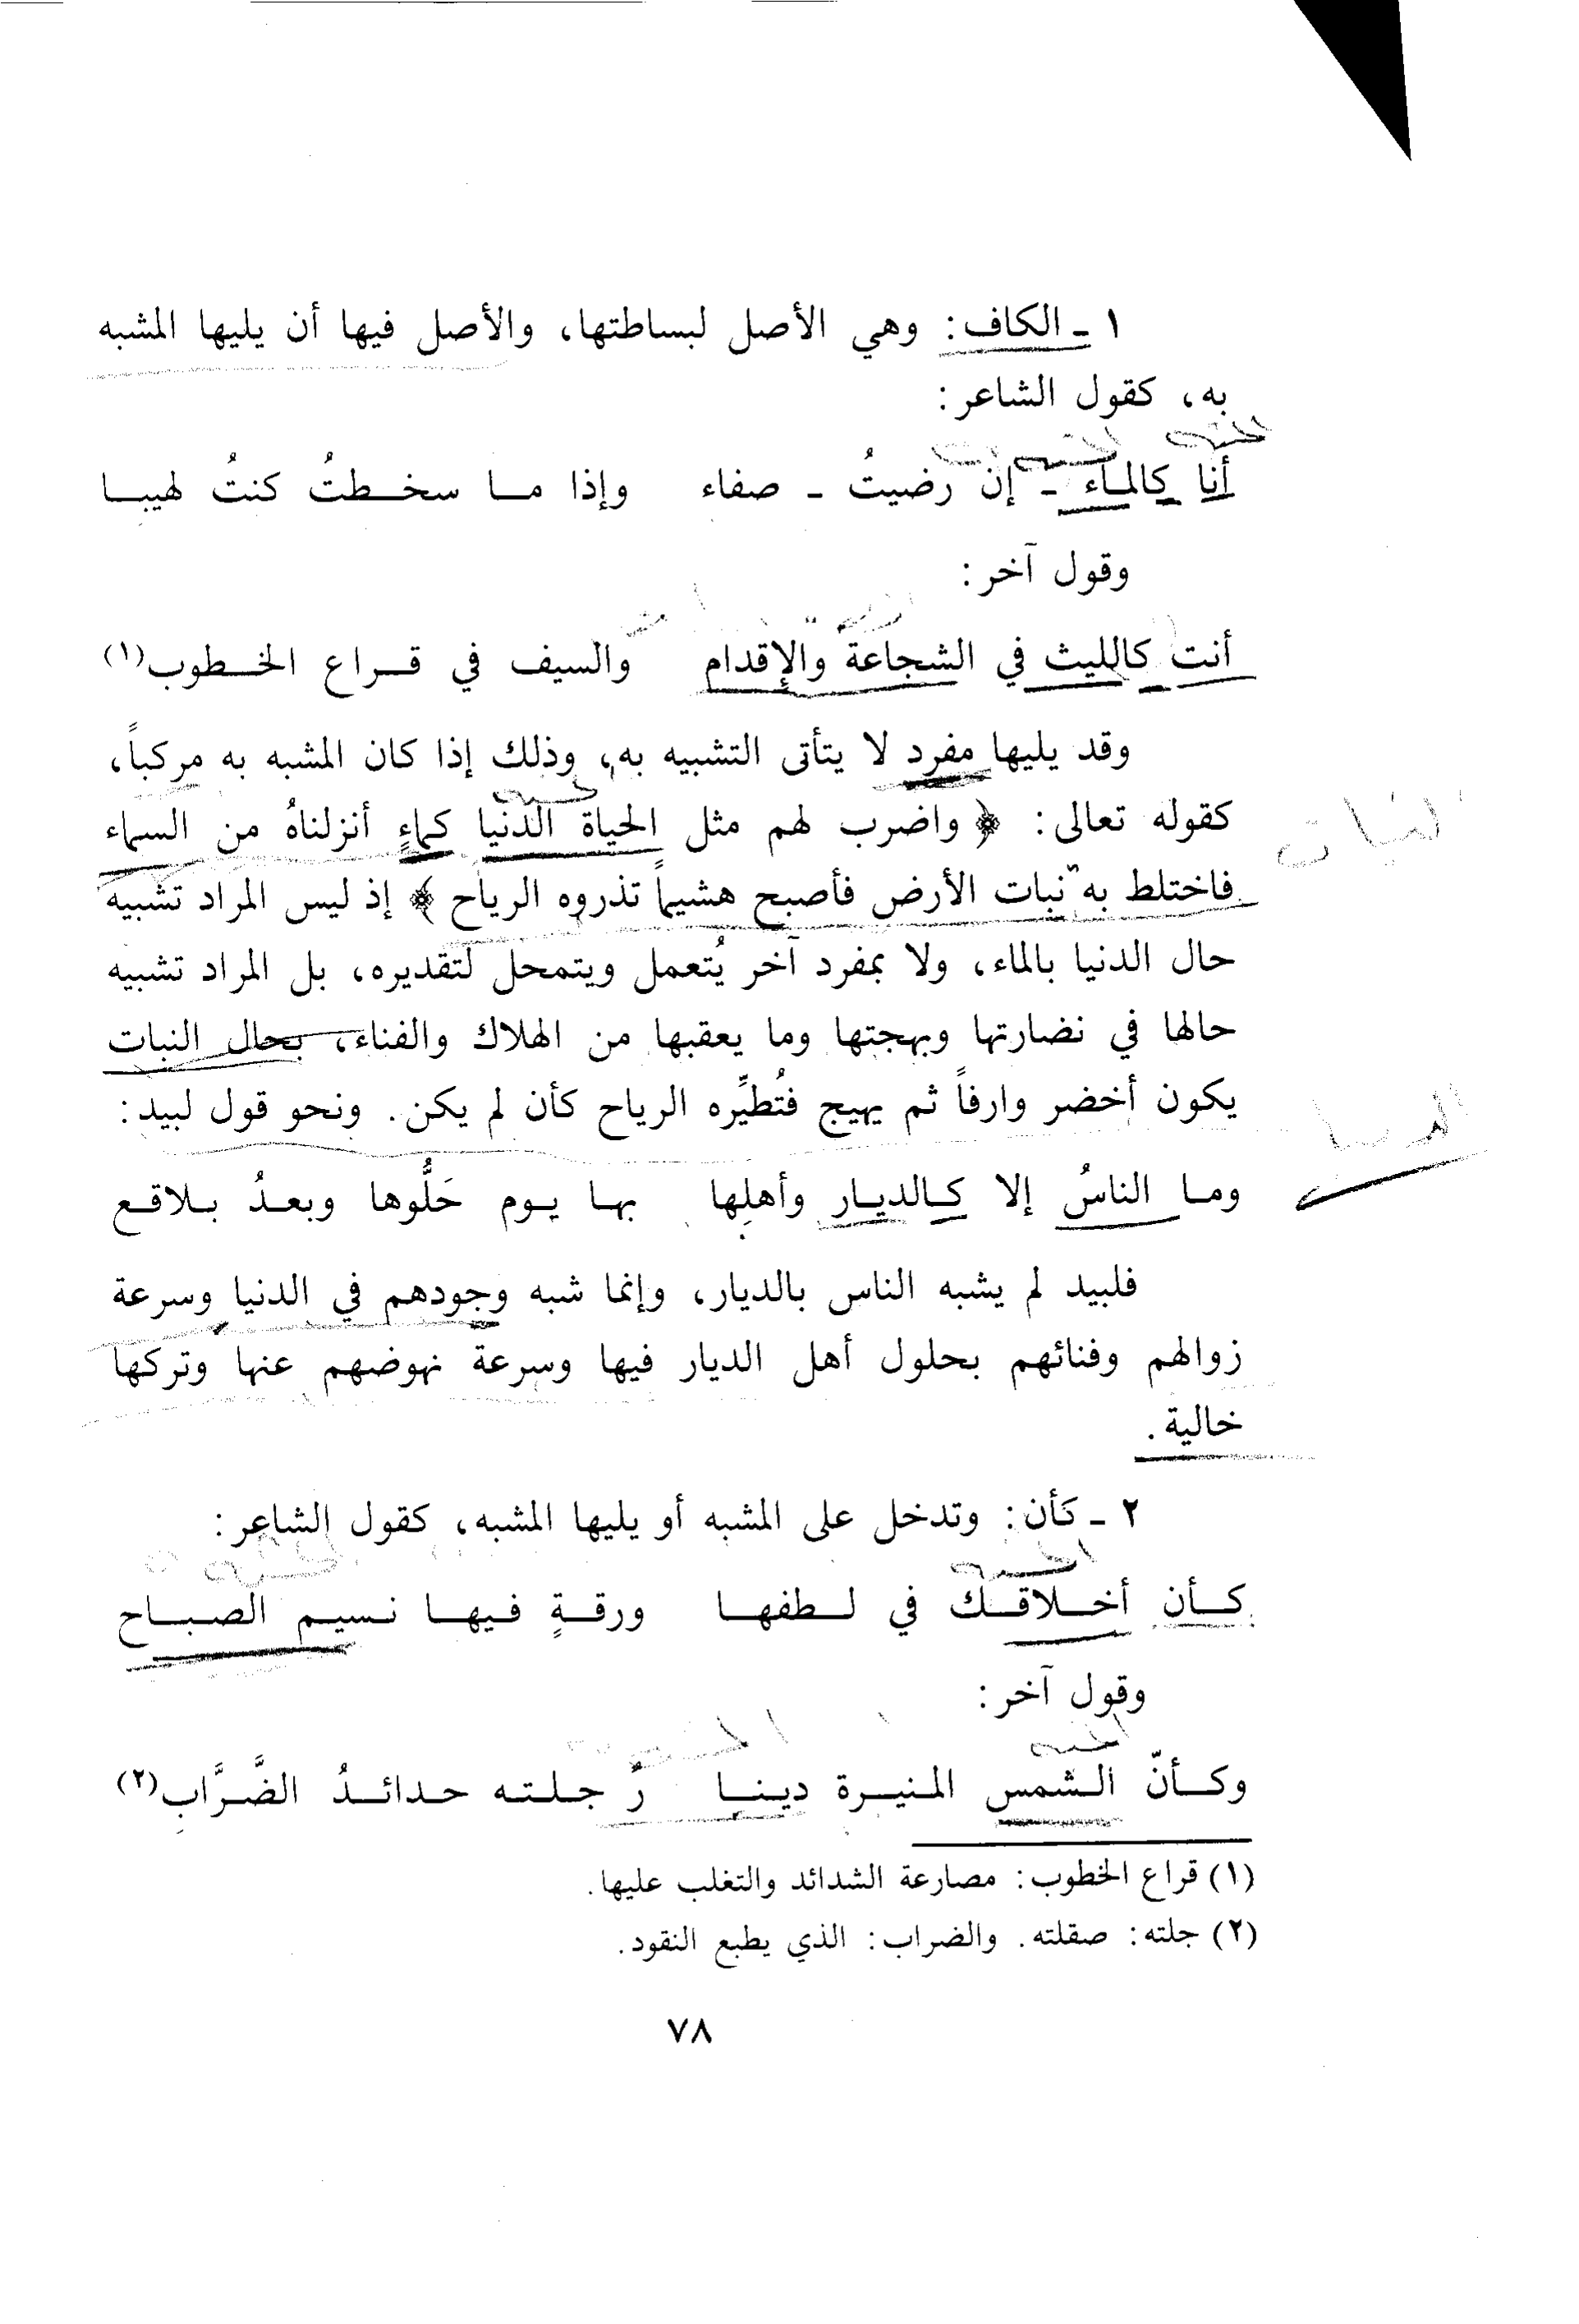 ١ ـ الكاف: وهي الأصل لبساطتها، والأصل فيها أن يليها المشبه
به، كقول الشاعر:
أنا كالماء ـ إن رضيتُ ـ صفاء وإذا ما سخطتُ كنتُ لهيبا
وقول آخر:
أنت كالليث في الشجاعة والإقدام والسيف في قراع الخطوب(١)
وقد يليها مفرد لا يتأتى التشبيه به، وذلك إذا كان المشبه به مركباً،
كقوله تعالى: ﴿ واضرب لهم مثل الحياة الدنيا كماءٍ أنزلناهُ من السماء
فاختلط به نبات الأرض فأصبح هشيماً تذروه الرياح ﴾ إذ ليس المراد تشبيه
النبات
حال الدنيا بالماء، ولا بمفرد آخر يُتعمل ويتمحل لتقديره، بل المراد تشبيه
حالها في نضارتها وبهجتها وما يعقبها من الهلاك والفناء، بحال النبات
يكون أخضر وارفاً ثم يهيج فتُطيِّره الرياح كأن لم يكن. ونحو قول لبيد:
وما الناسُ إلا كالديار وأهلها بها يوم حَلُّوها وبعدُ بلاقع
فلبيد لم يشبه الناس بالديار، وإنما شبه وجودهم في الدنيا وسرعة
زوالهم وفنائهم بحلول أهل الديار فيها وسرعة نهوضهم عنها وتركها
خالية.
٢ ـ كأن: وتدخل على المشبه أو يليها المشبه، كقول الشاعر:
كأن أخلاقك في لطفها ورقةٍ فيها نسيم الصباح
وقول آخر:
وكأنّ الشمس المنيرة دينا رٌ جلته حدائدُ الضَّرَّابِ(٢)
(١) قراع الخطوب: مصارعة الشدائد والتغلب عليها.
(٢) جلته: صقلته. والضراب: الذي يطبع النقود.
٧٨